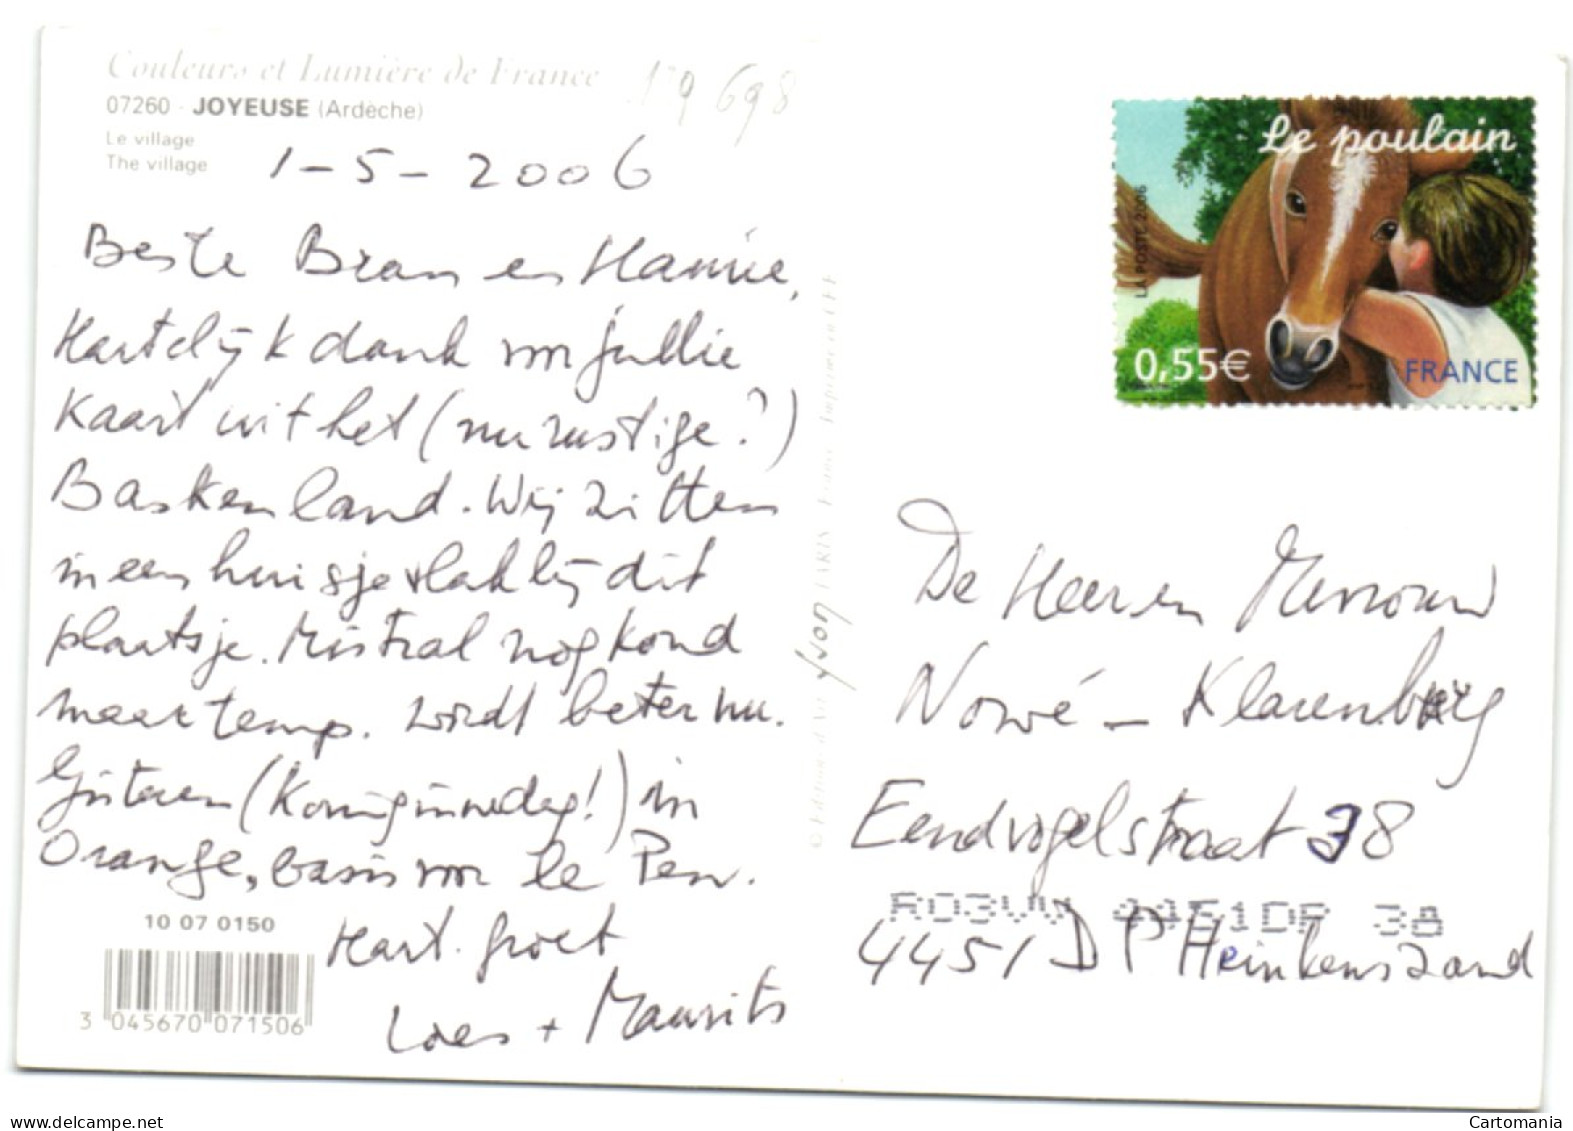 Couleurs et Lumière de France
07260 - JOYEUSE (Ardèche)
Le village
The village
1-5-2006
Beste Bram en Hannie,
Hartelijk dank voor jullie
kaart uit het (nu rustige?)
Baskenland. Wij zitten
in een huisje vlak bij dit
plaatsje. Mistral nog koud
maar temp. wordt beter nu.
Gisteren (Koninginnedag!) in
Orange, basis voor le Pen.
Hart. groet
Loes + Maurits
10 07 0150
3 045670 071506
yvon
Le poulain
LA POSTE 2006
0,55€
FRANCE
De Heer en Mevrouw
Nowé - Klarenberg
Eendvogelstraat 38
RO3VV 4451DP 38
4451 DP Heinkenszand
Cartomania